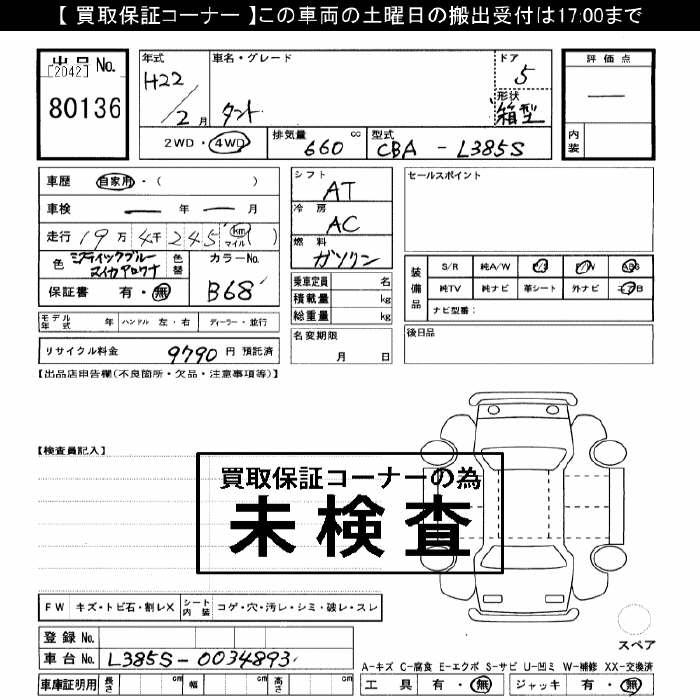 【 買取保証コーナー 】この車両の土曜日の搬出受付は17:00まで
出品 No.
[2042]
80136
年式
H22/2月
車名・グレード
タント
ドア
5
形状
箱型
評価点
—
内装
2WD・4WD
排気量 cc
660
型式
CBA - L385S
車歴 自家用・( )
車検 — 年 — 月
走行 19万4千245 km マイル ( )
色
色替
カラーNo.
B68
保証書 有・無
モデル年式 年 ハンドル 左・右 ディーラー・並行
リサイクル料金 9790 円 預託済
シフト
AT
冷房
AC
燃料
ガソリン
乗車定員 名
積載量 kg
総重量 kg
名変期限
月 日
セールスポイント
装備品
S/R 純A/W P/S P/W ABS
純TV 純ナビ 革シート 外ナビ エアB
ナビ型番:
後日品
【出品店申告欄(不良箇所・欠品・注意事項等)】
【検査員記入】
買取保証コーナーの為
未検査
FW キズ・トビ石・割レX シート内装 コゲ・穴・汚レ・シミ・破レ・スレ
登録 No.
車台 No. L385S-0034893
車庫証明用 長さ cm 幅 cm 高さ cm
スペア
A-キズ C-腐食 E-エクボ S-サビ U-凹ミ W-補修 XX-交換済
工具 有・無 ジャッキ 有・無